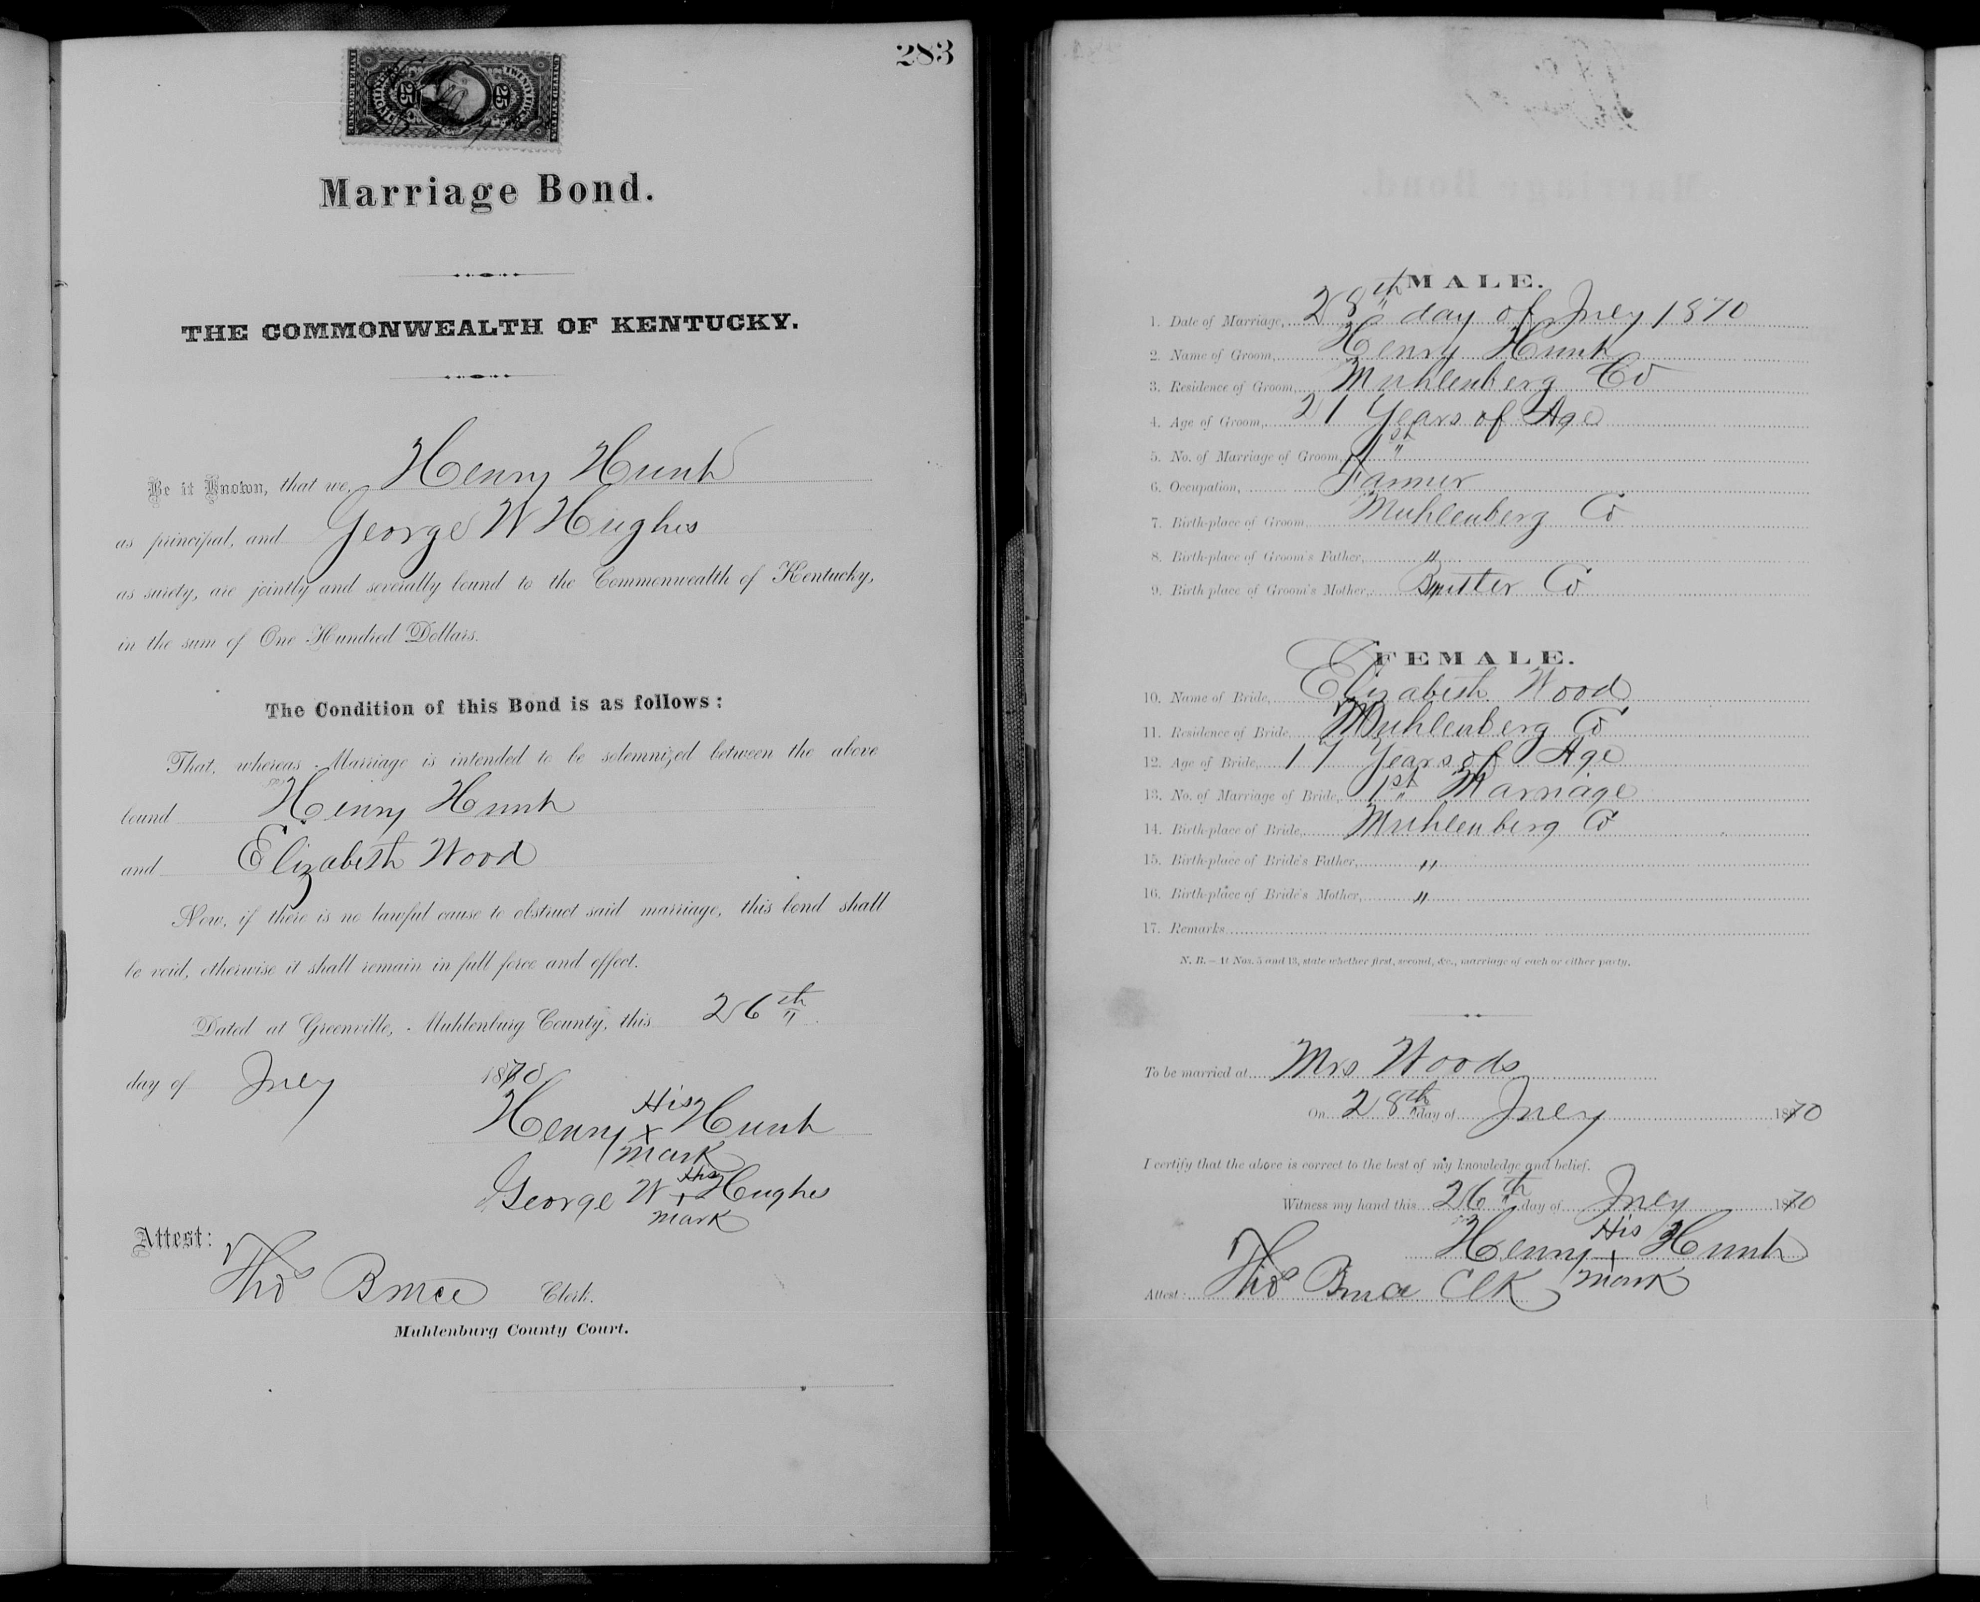 283
25 25
Marriage Bond.
THE COMMONWEALTH OF KENTUCKY.
Be it Known, that we, Henry Hunt
as principal, and George W Hughes
as surety, are jointly and severally bound to the Commonwealth of Kentucky,
in the sum of One Hundred Dollars.
The Condition of this Bond is as follows:
That, whereas Marriage is intended to be solemnized between the above
bound Henry Hunt
and Elizabeth Wood
Now, if there is no lawful cause to obstruct said marriage, this bond shall
be void, otherwise it shall remain in full force and effect.
Dated at Greenville, Muhlenburg County, this 26th
day of July 1870
His
Henry x Hunt
mark
His
George W x Hughes
mark
Attest:
Thos Bruce Clerk.
Muhlenburg County Court.
MALE.
1. Date of Marriage, 28th day of July 1870
2. Name of Groom, Henry Hunt
3. Residence of Groom, Muhlenberg Co
4. Age of Groom, 21 Years of Age
5. No. of Marriage of Groom, 1st "
6. Occupation, Farmer
7. Birth-place of Groom, Muhlenberg Co
8. Birth-place of Groom's Father, "
9. Birth place of Groom's Mother, Butler Co
FEMALE.
10. Name of Bride, Elizabeth Wood
11. Residence of Bride, Muhlenberg Co
12. Age of Bride, 17 Years of Age
13. No. of Marriage of Bride, 1st Marriage
14. Birth-place of Bride, Muhlenberg Co
15. Birth-place of Bride's Father, "
16. Birth-place of Bride's Mother, "
17. Remarks
N. B.—At Nos. 5 and 13, state whether first, second, &c., marriage of each or either party.
To be married at Mrs Woods
On 28th day of July 1870
I certify that the above is correct to the best of my knowledge and belief.
Witness my hand this 26th day of July 1870
His
Henry x Hunt
mark
Attest: Thos Bruce Clk